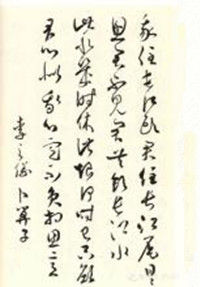 我住长江头君住长江尾日日
思君不见君共饮长江水
此水几时休此恨何时已只愿
君心似我心定不负相思意
李之仪卜算子